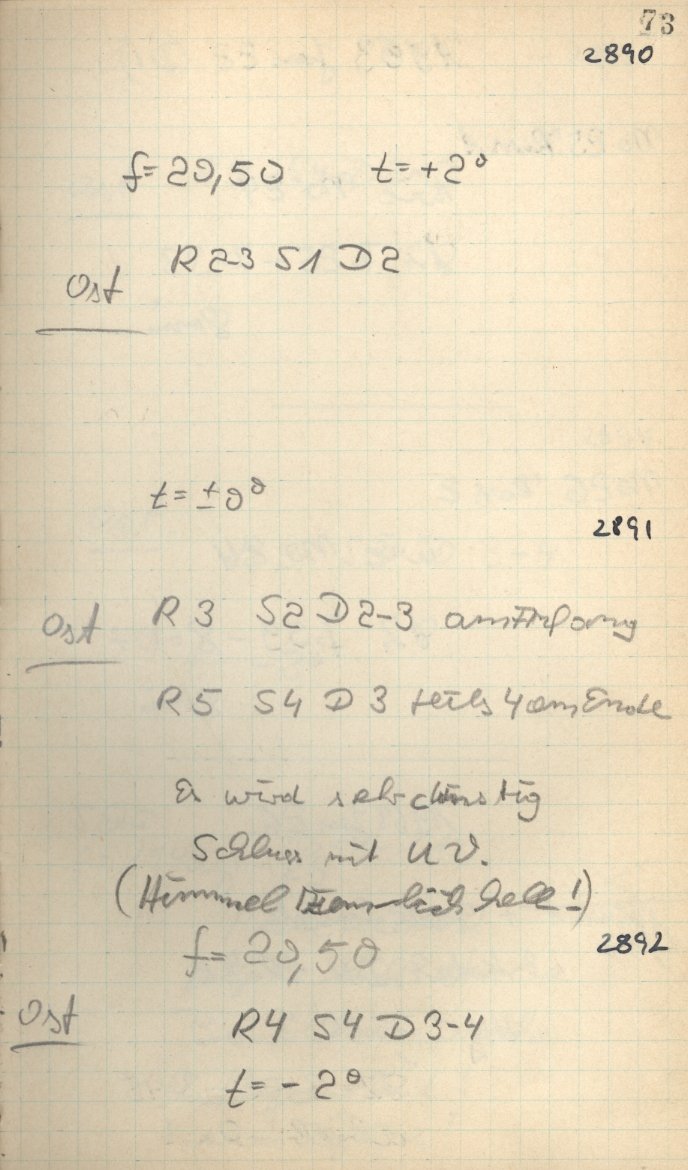 73
2890
f= 20,50 t= +2°
R 2-3 S1 D2
Ost
t= ±0°
2891
Ost R 3 S2 D2-3 am Anfang
R5 S4 D 3 teils 4 am Ende
Es wird sehr dunstig
Schluss mit U V.
(Himmel ziemlich hell!)
f= 20,50
2892
Ost R4 S4 D3-4
t= -2°